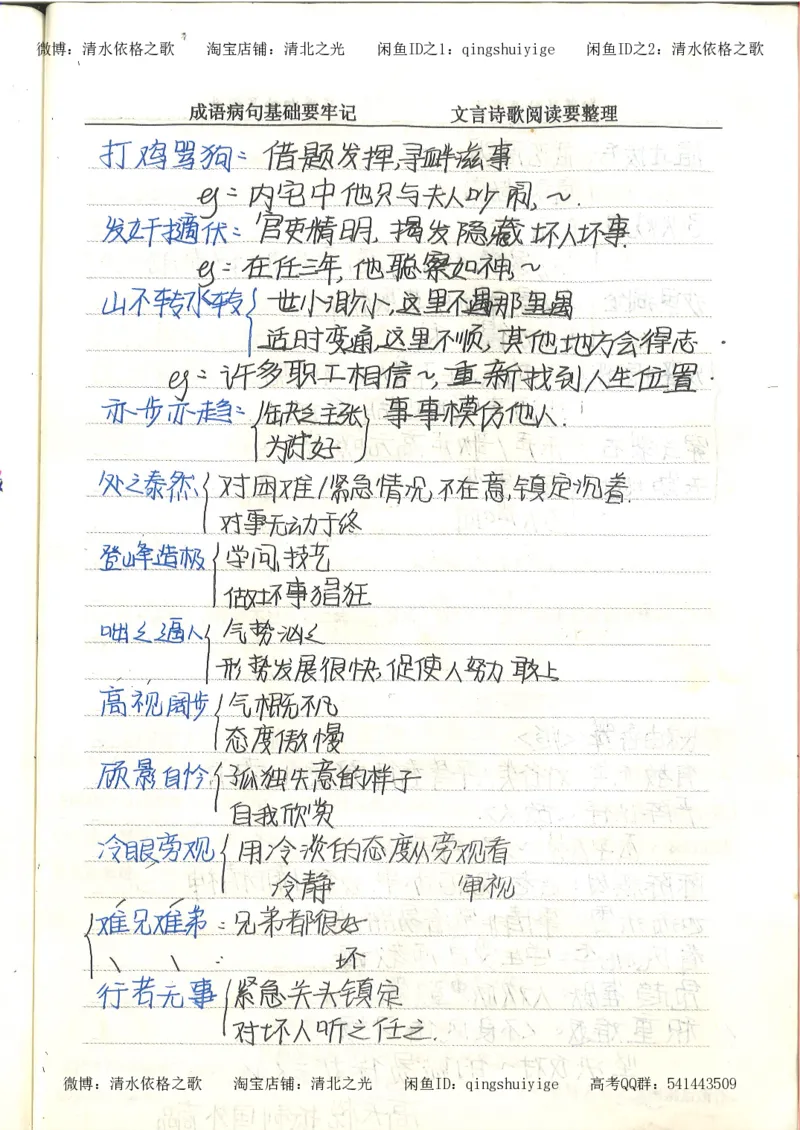 微博：清水依格之歌 淘宝店铺：清北之光 闲鱼ID之1：qingshuiyige 闲鱼ID之2：清水依格之歌
成语病句基础要牢记 文言诗歌阅读要整理
打鸡骂狗：借题发挥，寻衅滋事
eg：内宅中他只与夫人吵闹，～.
发奸擿伏：官吏精明，揭发隐藏坏人坏事.
eg：在任三年，他聪察如神，～
山不转水转{世小渺小，这里不遇那里遇
适时变通，这里不顺，其他地方会得志.
eg：许多职工相信～，重新找到人生位置.
亦步亦趋：{缺乏主张}事事模仿他人.
为讨好
处之泰然{对困难/紧急情况，不在意，镇定沉着.
对事无动于终
登峰造极{学问，技艺
做坏事猖狂
咄之逼人{气势汹之
形势发展很快，促使人努力敢上
高视阔步{气概不凡
态度傲慢
顾景自怜{孤独失意的样子
自我欣赏
冷眼旁观{用冷淡的态度从旁观看
冷静 审视
{难兄难弟：兄弟都很好
、 、 ： 坏
行若无事{紧急关头镇定
对坏人听之任之.
微博：清水依格之歌 淘宝店铺：清北之光 闲鱼ID：qingshuiyige 高考QQ群：541443509